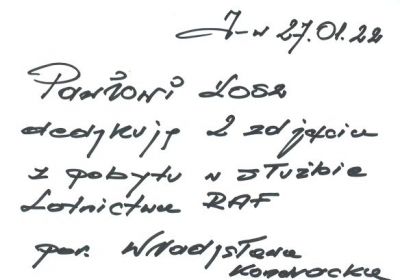 J-w 27.01.22
Państwu Łosz
dedykuję 2 zdjęcia
z pobytu w służbie
Lotnictwa RAF
por. Władysława